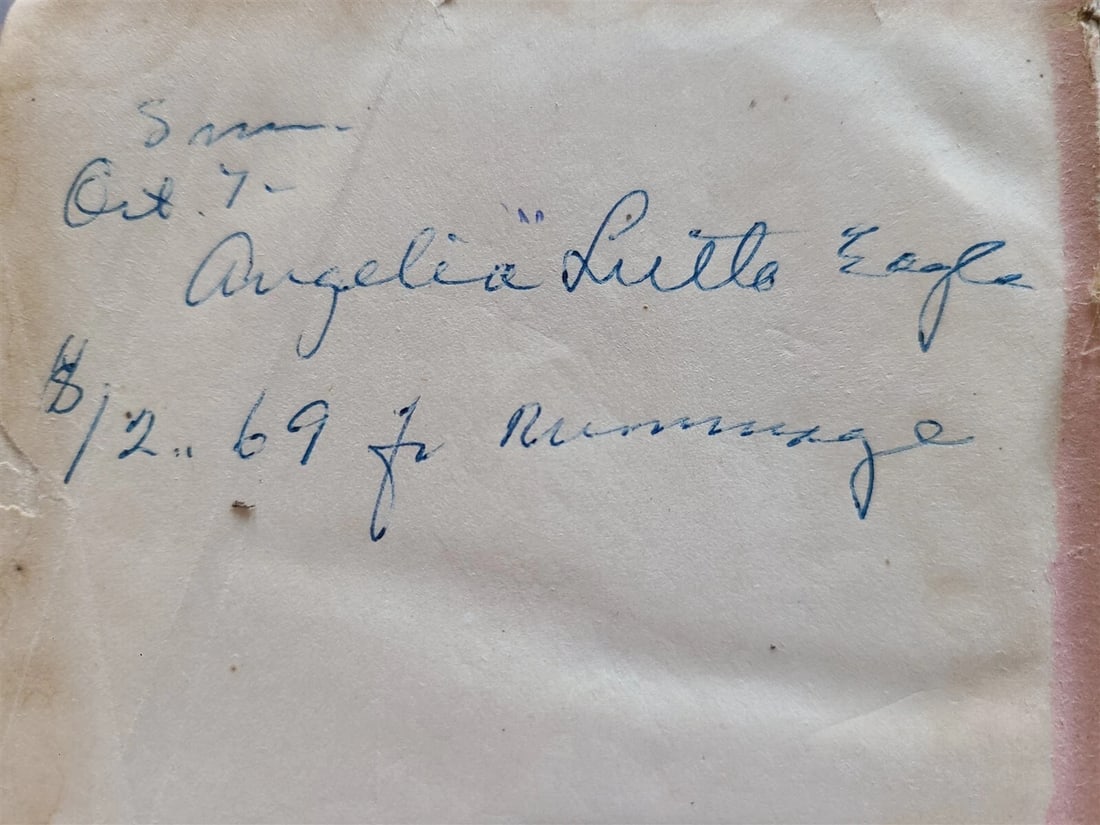 Sun.
Oct. 7-
Angelia " Lutta Eagle
$12.. 69 fr Rummage